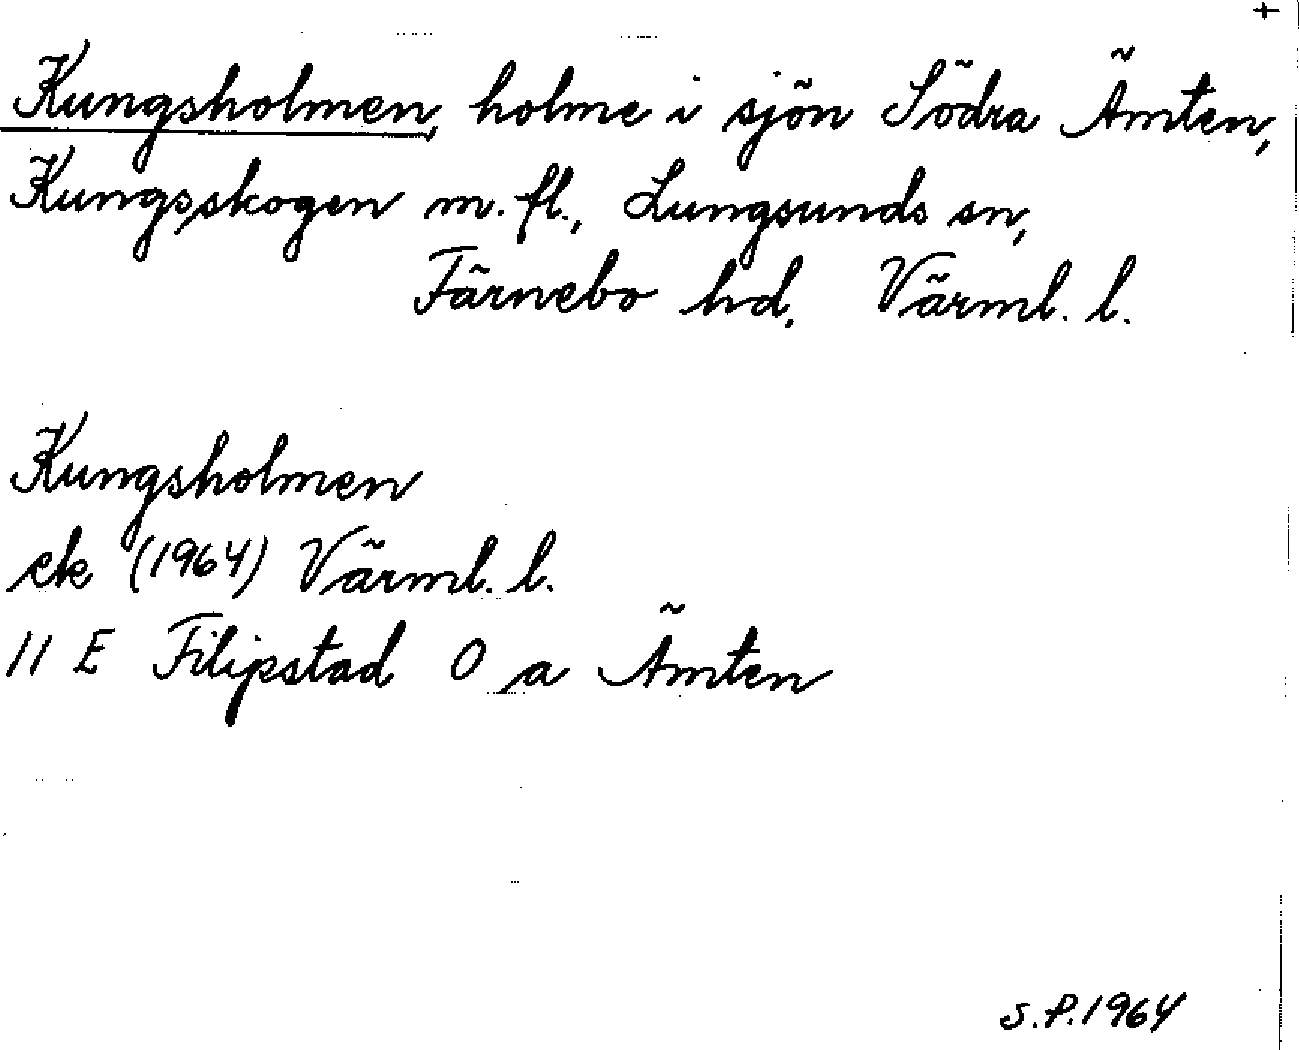 +
Kungsholmen, holme i sjön Södra Ämten,
Kungsskogen m. fl., Lungsunds sn,
Färnebo hd. Värml. l.
Kungsholmen
ek (1964) Värml. l.
11 E Filipstad 0 a Ämten
S.P. 1964